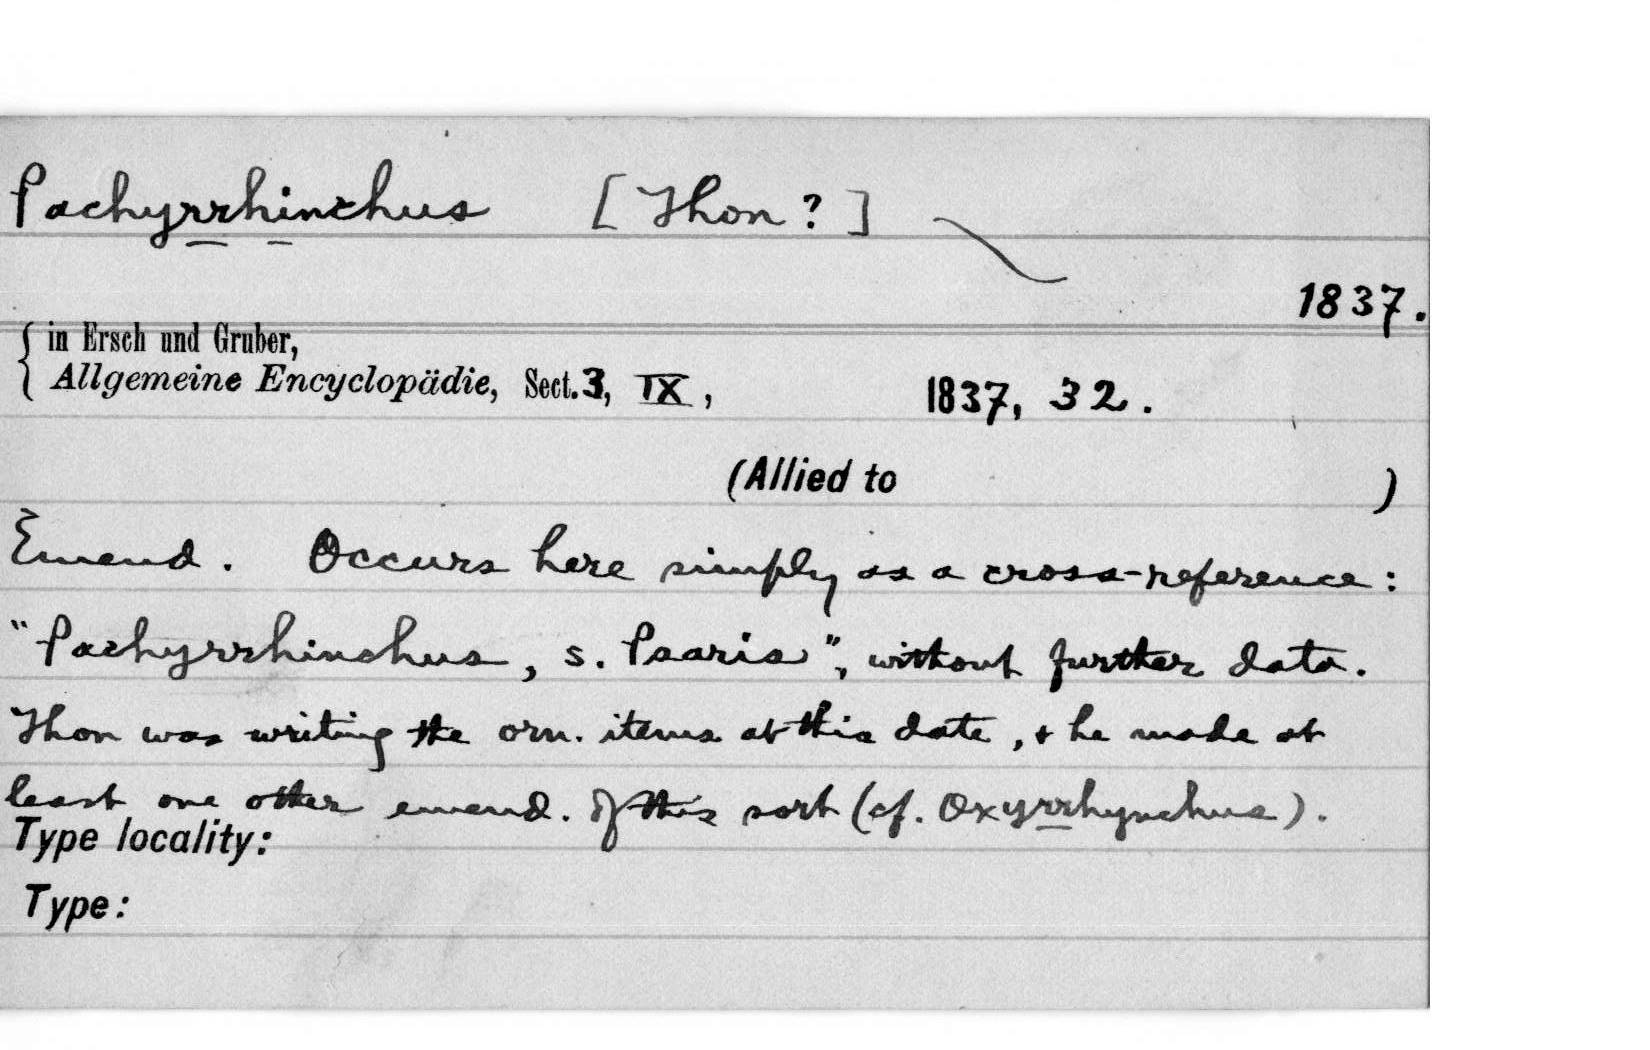 Pachyrrhinchus [Thon?]
1837.
in Ersch und Gruber,
Allgemeine Encyclopädie, Sect. 3, IX, 1837, 32.
(Allied to )
Emend. Occurs here simply as a cross-reference:
"Pachyrrhinchus, s. Psaris", without further data.
Thon was writing the orn. items at this date, & he made at
least one other emend. of this sort (cf. Oxyrrhynchus).
Type locality:
Type: